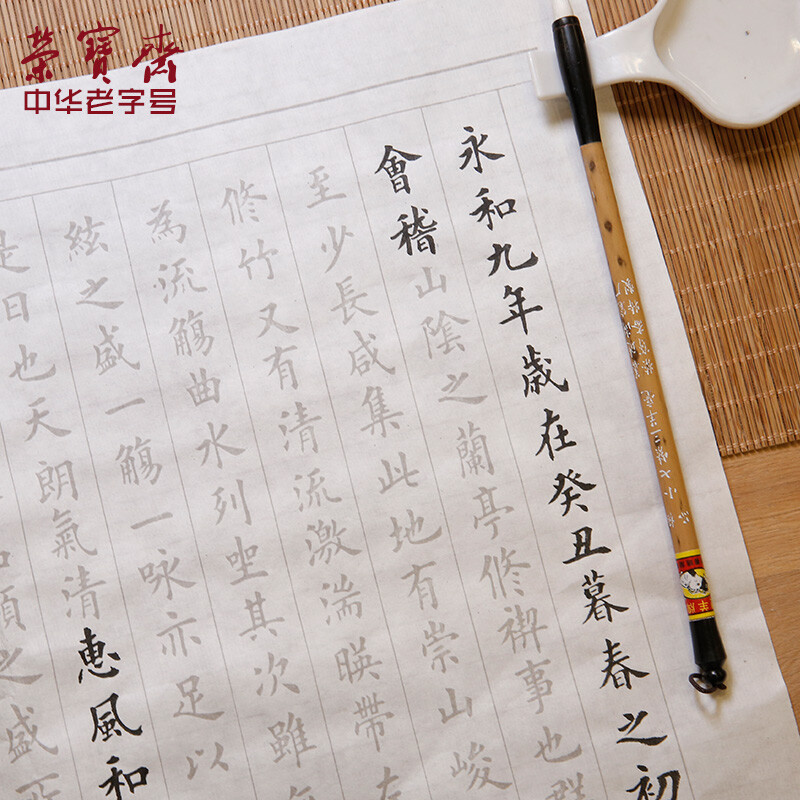 榮寶齋
中华老字号
永和九年歲在癸丑暮春之初
會稽山陰之蘭亭修禊事也群
至少長咸集此地有崇山峻
修竹又有清流激湍暎帶
為流觴曲水列坐其次雖
絃之盛一觴一咏亦足以
是日也天朗氣清惠風和
類之盛所